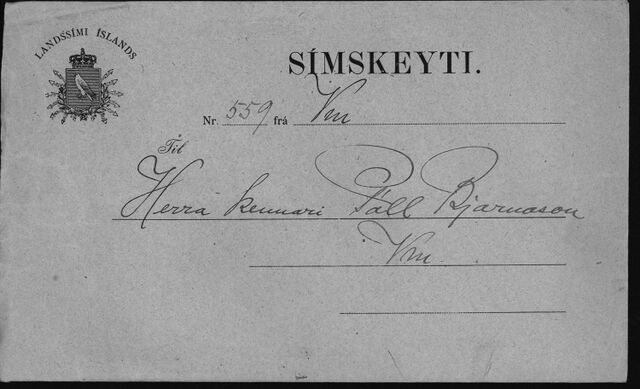 LANDSSÍMI ÍSLANDS
SÍMSKEYTI.
Nr. 559 frá Vm
Til
Herra kennari Páll Bjarnason
Vm.